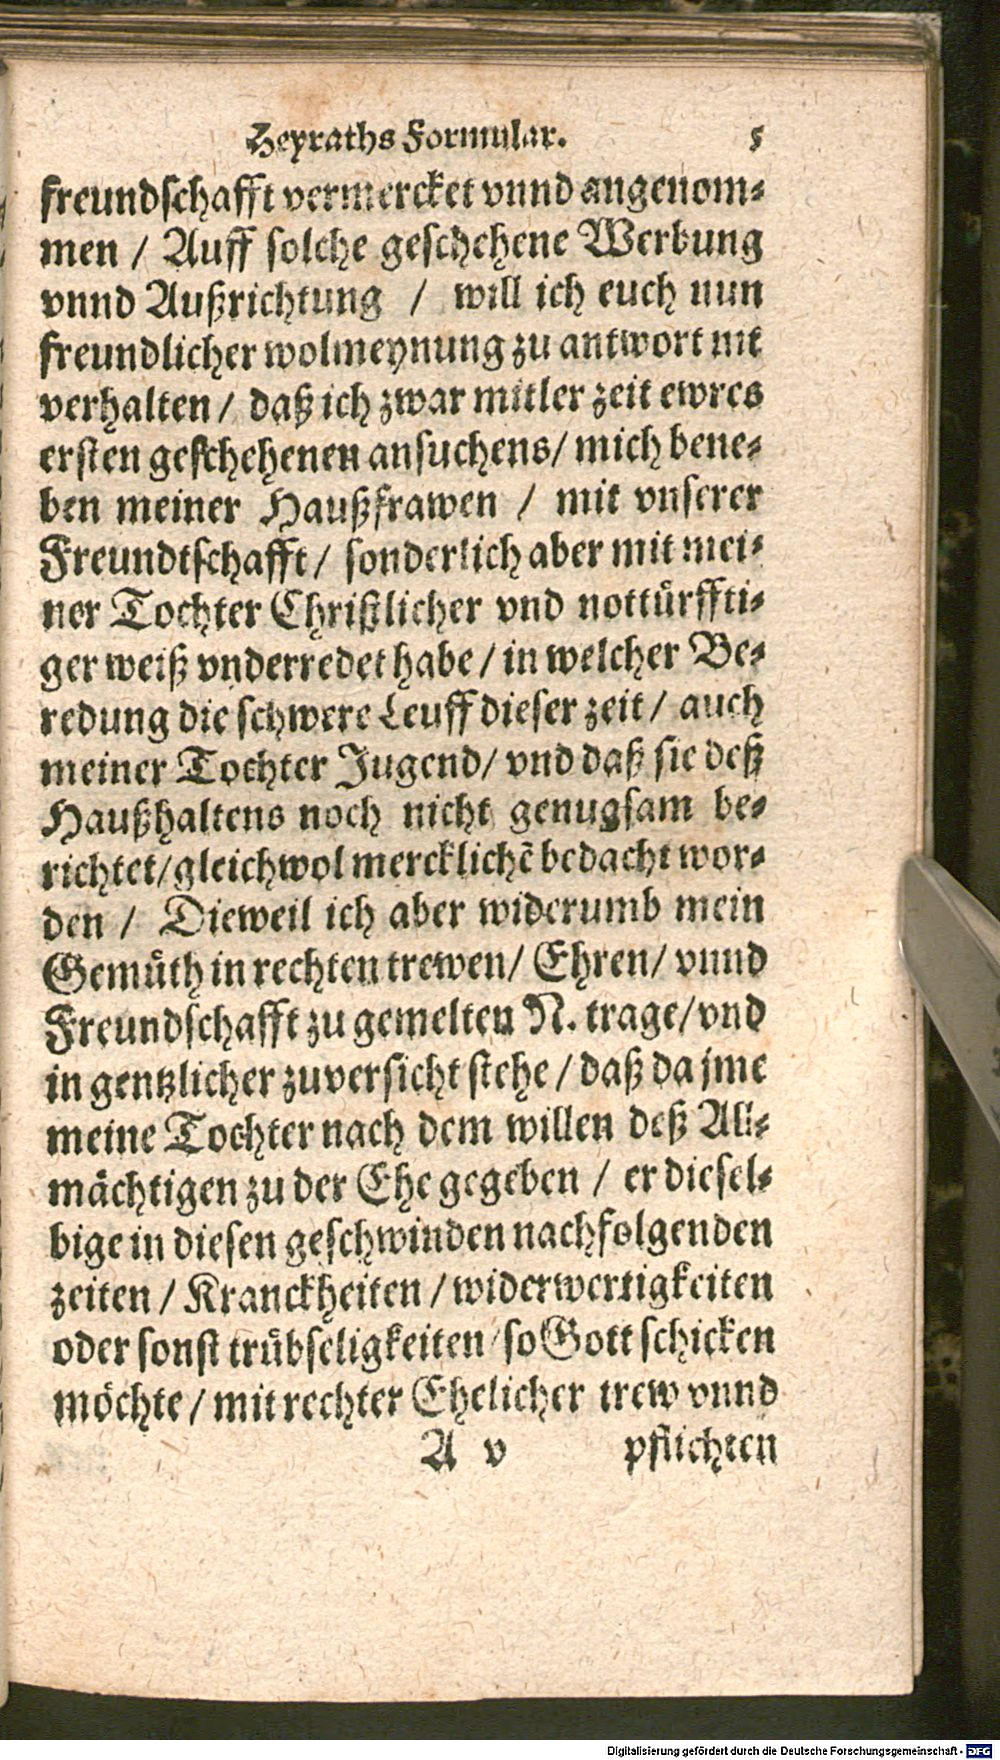 Heyraths Formular. 5
freundschafft vermercket vnnd angenom⸗
men / Auff solche geschehene Werbung
vnnd Außrichtung / will ich euch nun
freundlicher wolmeynung zu antwort nit
verhalten / daß ich zwar mitler zeit ewres
ersten geschehenen ansuchens / mich bene⸗
ben meiner Haußfrawen / mit vnserer
Freundtschafft / sonderlich aber mit mei⸗
ner Tochter Christlicher vnd nottuͤrffti⸗
ger weiß vnderredet habe / in welcher Be⸗
redung die schwere Leuff dieser zeit / auch
meiner Tochter Jugend / vnd daß sie deß
Haußhaltens noch nicht genugsam be⸗
richtet / gleichwol mercklichẽ bedacht wor⸗
den / Dieweil ich aber widerumb mein
Gemuͤth in rechten trewen / Ehren / vnnd
Freundschafft zu gemelten N. trage / vnd
in gentzlicher zuversicht stehe / daß da jme
meine Tochter nach dem willen deß All⸗
maͤchtigen zu der Ehe gegeben / er diesel⸗
bige in diesen geschwinden nachfolgenden
zeiten / Kranckheiten / widerwertigkeiten
oder sonst truͤbseligkeiten / so Gott schicken
moͤchte / mit rechter Ehelicher trew vnnd
A v pflichten
Digitalisierung gefördert durch die Deutsche Forschungsgemeinschaft - DFG